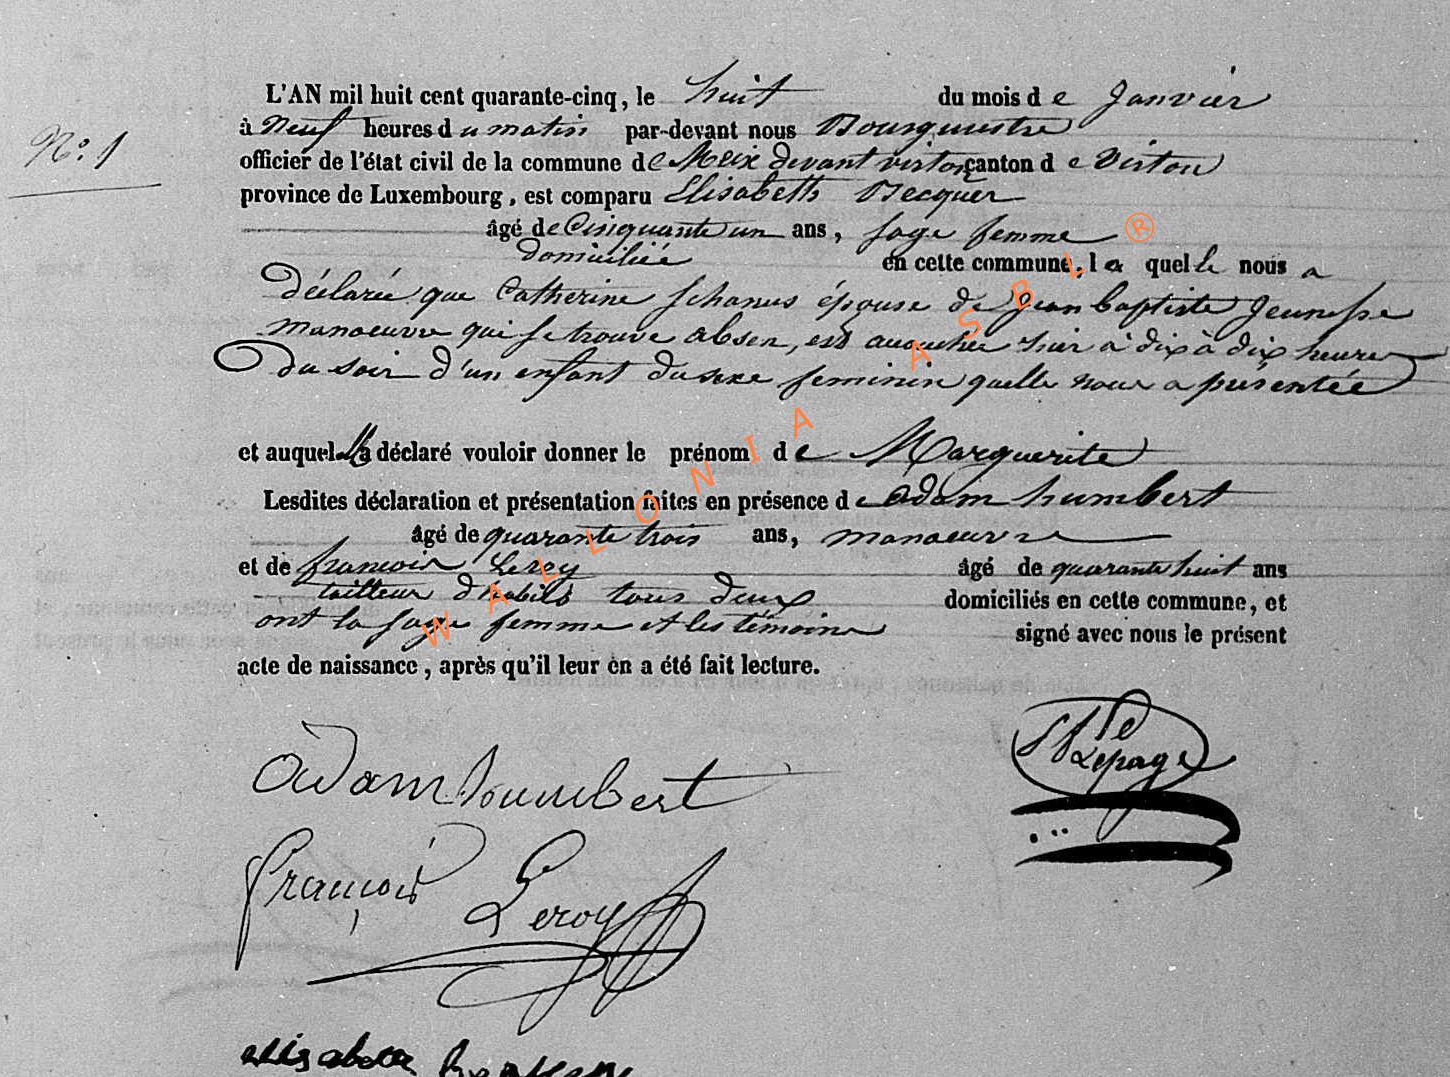 N.o 1
L'AN mil huit cent quarante-cinq, le huit du mois de Janvier
à Neuf heures du matin par-devant nous Bourgmestre
officier de l'état civil de la commune de Meix devant virton canton de Virton
province de Luxembourg, est comparu Elisabeth Becquer
âgé de Cinquante un ans, sage femme
domiciliée en cette commune, la quelle nous a
déclarée que Catherine Schanus épouse de Jean baptiste Jeunesse
manoeuvre qui se trouve absen, est accouchée hier à dix à dix heures
du soir d'un enfant du sexe feminin quelle nous a présentée
et auquel a déclaré vouloir donner le prénom de Marguerite
Lesdites déclaration et présentation faites en présence de Adam humbert
âgé de quarante trois ans, manoeuvre
et de francois Leroy âgé de quarante huit ans
tailleur d'habits tous deux domiciliés en cette commune, et
ont la sage femme et les témoins signé avec nous le présent
acte de naissance, après qu'il leur en a été fait lecture.
Lepage
Adam houmbert
françois Leroy
elisabette
WALLONIA ASBL ®